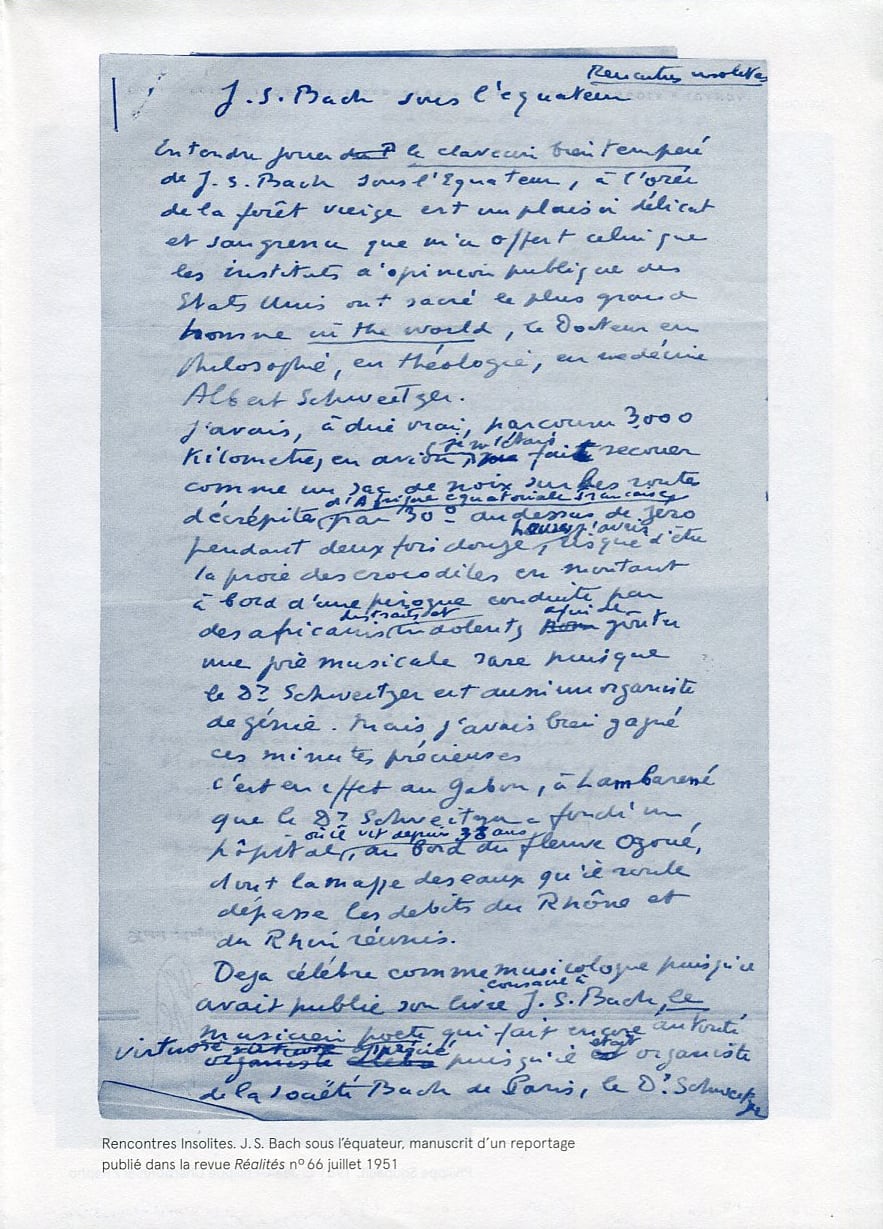 Rencontres insolites
J. S. Bach sous l'equateur
Entendre jouer de P le clavecin bien tempéré
de J. S. Bach sous l'Equateur, à l'orée
de la forêt vierge est un plaisir délicat
et saugrenu que m'a offert celui que
les instituts d'opinion publique des
Etats Unis ont sacré le plus grand
homme in the world, le Docteur en
philosophie, en théologie, en médecine
Albert Schweitzer.
J'avais, à dire vrai, parcouru 3000
Kilometres en avion, je m'étais fait secouer
comme un sac de noix sur les routes
décrépites d'Afrique équatoriale francaise, par 30° au dessus de zero
pendant deux fois douze heures, j'avais risqué d'être
la proie des crocodiles en montant
à bord d'une pirogue conduite par
des africains distraits et indolents, afin de goûter
une joie musicale rare puisque
le Dr Schweitzer est aussi un organiste
de génie. Mais j'avais bien gagné
ces minutes précieuses
c'est en effet au Gabon, à Lambarené
que le Dr Schweitzer a fondé un
hôpital, où il vit depuis 38 ans, au bord du fleuve Ogoué,
dont la masse des eaux qu'il roule
dépasse les debits du Rhône et
du Rhin réunis.
Deja célébre comme musicologue puisqu'il
avait publié son livre consacré à J. S. Bach, le
musicien poete qui fait encore autorité
virtuose organiste puisqu'il était organiste
de la société Bach de Paris, le Dr Schweitzer
Rencontres Insolites. J. S. Bach sous l'équateur, manuscrit d'un reportage
publié dans la revue Réalités nº 66 juillet 1951